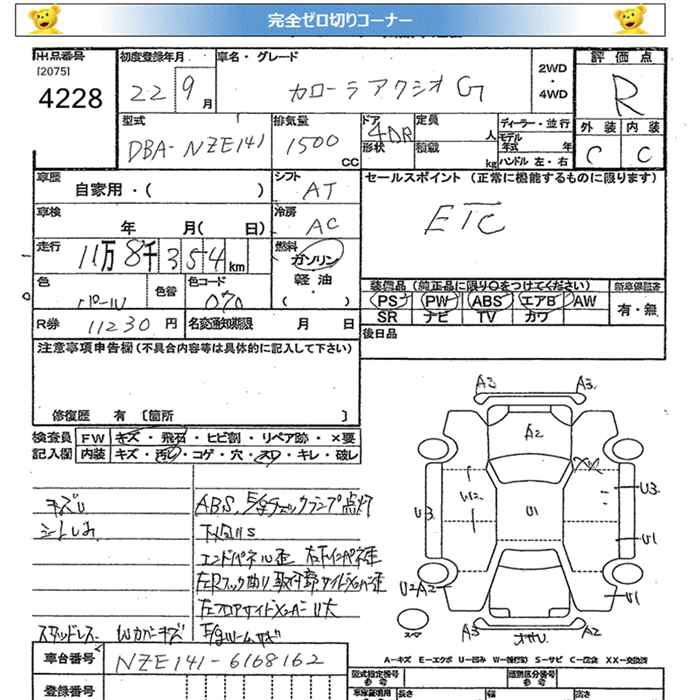 完全ゼロ切りコーナー
出品番号 初度登録年月 車名・グレード 評価点
[2075]
4228
22 9月 カローラアクシオG 2WD・4WD R
型式 排気量 ドア 定員 ディーラー・並行 外装 内装
DBA-NZE141 1500CC 4DR 人 モデル年式 年
形状 積載 kg ハンドル 左・右 C C
車歴 自家用・( ) シフト AT セールスポイント (正常に機能するものに限ります)
車検 年 月( 日) 冷房 AC ETC
走行 11万8千354km 燃料 ガソリン 軽油・( )
色 パール 色替 色コード 070
装備品 (純正品に限り○をつけてください) 新車保証書
PS PW ABS エアB AW 有・無
SR ナビ TV カワ
R券 11230円 名変通知期限 月 日 後日品
注意事項申告欄 (不具合内容等は具体的に記入して下さい)
修復歴 有 [箇所 ]
検査員 FW キズ・飛石・ヒビ割・リペア跡・×要
記入欄 内装 キズ・汚れ・コゲ・穴・スレ・キレ・破レ
シートしみ
ABS,
点灯
下廻りS
エンドパネル歪
スタッドレス
車台番号 NZE141-6168162
登録番号
A3 A3
A2
U3 U1 U3
U1
U2A2 U1
A3 A2
スペア
A-キズ E-エクボ U-凹み W-(補修跡) S-サビ C-腐食 XX-交換済
型式指定番号 類別区分番号
長さ 幅 高さ